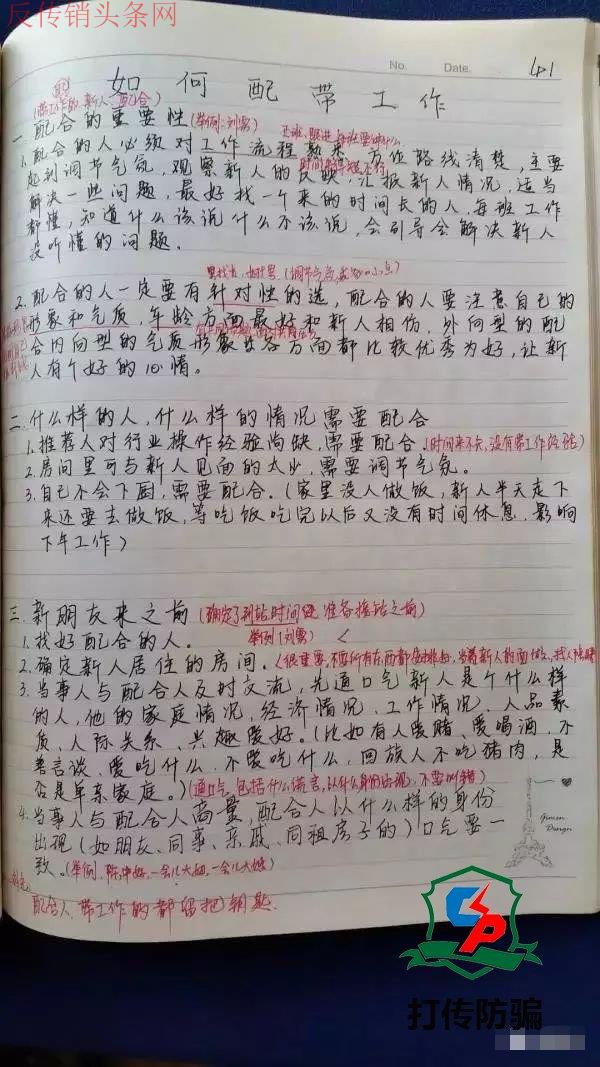 反传销头条网
No. Date. 41
如何配带工作
(带工作的、新人、配合)
一.配合的重要性(举例:刘霞)
1.配合的人必须对工作流程熟来,方位路线清楚,主要
起到调节气氛,观察新人的反映,汇报新人情况,适当
解决一些问题,最好找一个来的时间长的人,每班工作
都懂,知道什么该说什么不该说,会引导会解决新人
没听懂的问题。
2.配合的人一定要有针对性的选,配合的人要注意自己的
形象和气质,年龄方面最好和新人相仿,外向型的配
合内向型的气质形象等各方面都比较优秀为好,让新
人有个好的心情。
二.什么样的人,什么样的情况需要配合
1.推荐人对行业操作经验尚缺,需要配合(时间来不长,没有带工作经验)
2.房间里可与新人见面的太少,需要调节气氛。
3.自己不会下厨,需要配合。(家里没人做饭,新人半天走下
来还要去做饭,等吃饭吃完以后又没有时间休息,影响
下午工作)
三.新朋友来之前(确定了到站时间 准备接站之前)
1.找好配合的人。 举例(刘霞)
2.确定新人居住的房间。(很重要,不要所有东西都
3.当事人与配合人及时交流,先通口气新人是个什么样
的人,他的家庭情况、经济情况、工作情况、人品素
质、人际关系、兴趣爱好。(比如有人爱赌、爱喝酒,不
善言谈、爱吃什么,不爱吃什么,回族人不吃猪肉,是
否是单亲家庭。)(通口气,包括什么谎言,以什么身份出现,不要叫错)
4.当事人与配合人商量,配合人以什么样的身份
出现(如朋友、同事、亲戚、同租房子的)口气要一
致。(举例,陈 一会儿大姐,一会儿大嫂)
配合人、带工作的都留把钥匙.
打传防骗